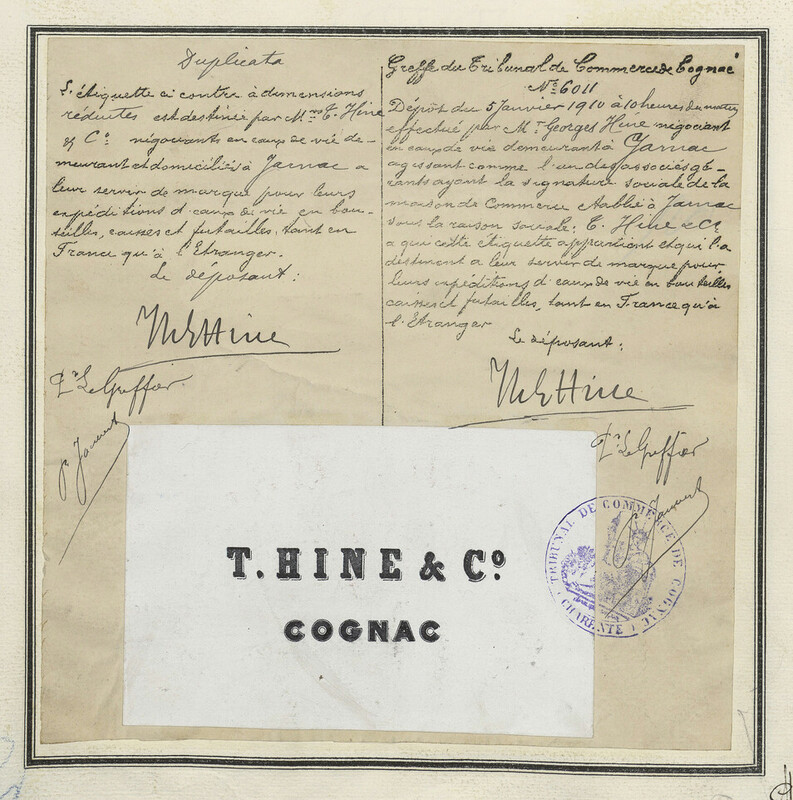 Duplicata
L'étiquette ci contre à dimensions
réduites est destinée par Mrs T. Hine
& Co négociants en eaux de vie de-
meurant et domiciliés à Jarnac a
leur servir de marque pour leurs
expéditions d'eaux de vie en bou-
teilles, caisses et futailles, tant en
France qu'à l'Etranger.
Le déposant:
Pr Le Greffier
Greffe du Tribunal de Commerce de Cognac
No 6011
Dépôt du 5 Janvier 1910 à 10 heures du matin
effectué par Mr Georges Hine négociant
en eaux de vie demeurant à Jarnac
agissant comme l'un des associés gé-
rants ayant la signature sociale de la
maison de Commerce établie à Jarnac
sous la raison sociale: T. Hine & Co
a qui cette étiquette appartient et qui l'a
destinent a leur servir de marque pour
leurs expéditions d'eaux de vie en bouteilles
caisses et futailles, tant en France qu'à
l'Etranger
Le déposant:
Pr Le Greffier
T. HINE & Co
COGNAC
TRIBUNAL DE COMMERCE DE COGNAC
CHARENTE